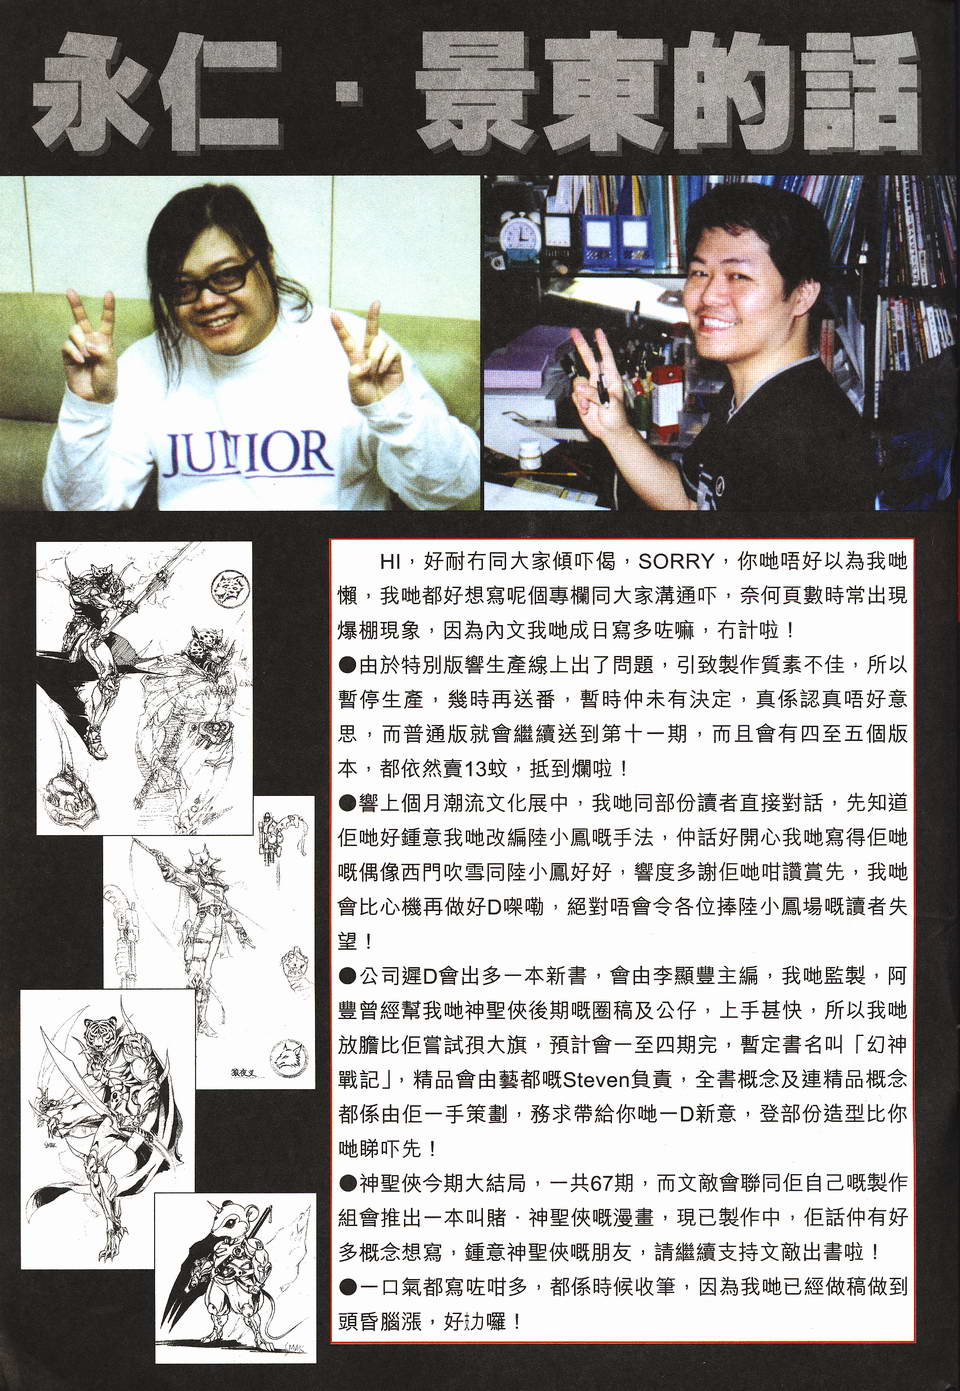 永仁·景東的話
JUNIOR
HI，好耐冇同大家傾吓偈，SORRY，你哋唔好以為我哋
懶，我哋都好想寫呢個專欄同大家溝通吓，奈何頁數時常出現
爆棚現象，因為內文我哋成日寫多咗嘛，冇計啦！
●由於特別版響生產線上出了問題，引致製作質素不佳，所以
暫停生產，幾時再送番，暫時仲未有決定，真係認真唔好意
思，而普通版就會繼續送到第十一期，而且會有四至五個版
本，都依然賣13蚊，抵到爛啦！
●響上個月潮流文化展中，我哋同部份讀者直接對話，先知道
佢哋好鍾意我哋改編陸小鳳嘅手法，仲話好開心我哋寫得佢哋
嘅偶像西門吹雪同陸小鳳好好，響度多謝佢哋咁讚賞先，我哋
會比心機再做好D㗎嘞，絕對唔會令各位捧陸小鳳場嘅讀者失
望！
●公司遲D會出多一本新書，會由李顯豐主編，我哋監製，阿
豐曾經幫我哋神聖俠後期嘅圈稿及公仔，上手甚快，所以我哋
放膽比佢嘗試孭大旗，預計會一至四期完，暫定書名叫「幻神
戰記」，精品會由藝都嘅Steven負責，全書概念及連精品概念
都係由佢一手策劃，務求帶給你哋一D新意，登部份造型比你
哋睇吓先！
●神聖俠今期大結局，一共67期，而文敵會聯同佢自己嘅製作
組會推出一本叫賭．神聖俠嘅漫畫，現已製作中，佢話仲有好
多概念想寫，鍾意神聖俠嘅朋友，請繼續支持文敵出書啦！
●一口氣都寫咗咁多，都係時候收筆，因為我哋已經做稿做到
頭昏腦漲，好攰囉！
狼夜叉
SMAK